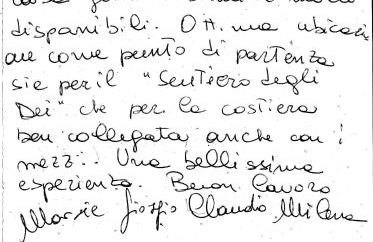 disponibili. Ott. una ubicazio
ne come punto di partenza
sia per il "Sentiero degli
Dei" che per la costiera
ben collegata anche con i
mezzi. Una bellissima
esperienza. Buon lavoro
Giorgio Claudio Milena